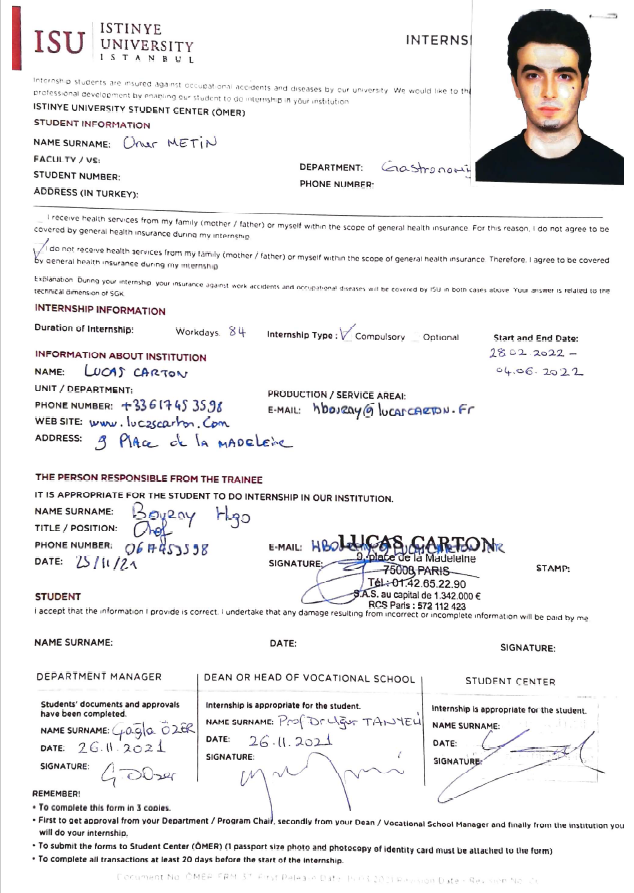 ISU
ISTINYE
UNIVERSITY
ISTANBUL
INTERNSI
Internship students are insured against occupational accidents and diseases by our university. We would like to th
professional development by enabling our student to do internship in your institution
ISTINYE UNIVERSITY STUDENT CENTER (ÖMER)
STUDENT INFORMATION
NAME SURNAME: Onur METİN
FACULTY / VS:
DEPARTMENT: Gastronomi
STUDENT NUMBER:
PHONE NUMBER:
ADDRESS (IN TURKEY):
I receive health services from my family (mother / father) or myself within the scope of general health insurance. For this reason, I do not agree to be
covered by general health insurance during my internship
I do not receive health services from my family (mother / father) or myself within the scope of general health insurance. Therefore, I agree to be covered
by general health insurance during my internship
Explanation: During your internship, your insurance against work accidents and occupational diseases will be covered by ISU in both cases above. Your answer is related to the
technical dimension of SGK
INTERNSHIP INFORMATION
Duration of Internship: Workdays 84 Internship Type: Compulsory Optional Start and End Date:
28.02.2022 –
04.06.2022
INFORMATION ABOUT INSTITUTION
NAME: LUCAS CARTON
UNIT / DEPARTMENT:
PRODUCTION / SERVICE AREAI:
PHONE NUMBER: +33617453598
E-MAIL: hbouray@lucascarton.Fr
WEB SITE: www.lucascarton.Com
ADDRESS: 9 PLAce de la MADELEINE
THE PERSON RESPONSIBLE FROM THE TRAINEE
IT IS APPROPRIATE FOR THE STUDENT TO DO INTERNSHIP IN OUR INSTITUTION.
NAME SURNAME: Bouray Hugo
TITLE / POSITION: Chef
PHONE NUMBER: 0617453598
E-MAIL:
DATE: 25/11/21
SIGNATURE:
STAMP:
LUCAS CARTON
9, place de la Madeleine
75008 PARIS
Tél.: 01.42.65.22.90
S.A.S. au capital de 1.342.000 €
RCS Paris : 572 112 423
STUDENT
I accept that the information I provide is correct. I undertake that any damage resulting from incorrect or incomplete information will be paid by me
NAME SURNAME:
DATE:
SIGNATURE:
DEPARTMENT MANAGER
DEAN OR HEAD OF VOCATIONAL SCHOOL
STUDENT CENTER
Students' documents and approvals
have been completed.
NAME SURNAME: Çağla ÖZER
DATE: 26.11.2021
SIGNATURE:
Internship is appropriate for the student.
NAME SURNAME: Prof Dr Uğur TANYELİ
DATE: 26.11.2021
SIGNATURE:
Internship is appropriate for the student.
NAME SURNAME:
DATE:
SIGNATURE:
REMEMBER!
• To complete this form in 3 copies.
• First to get approval from your Department / Program Chair, secondly from your Dean / Vocational School Manager and finally from the institution you
will do your internship.
• To submit the forms to Student Center (ÖMER) (1 passport size photo and photocopy of identity card must be attached to the form)
• To complete all transactions at least 20 days before the start of the internship.